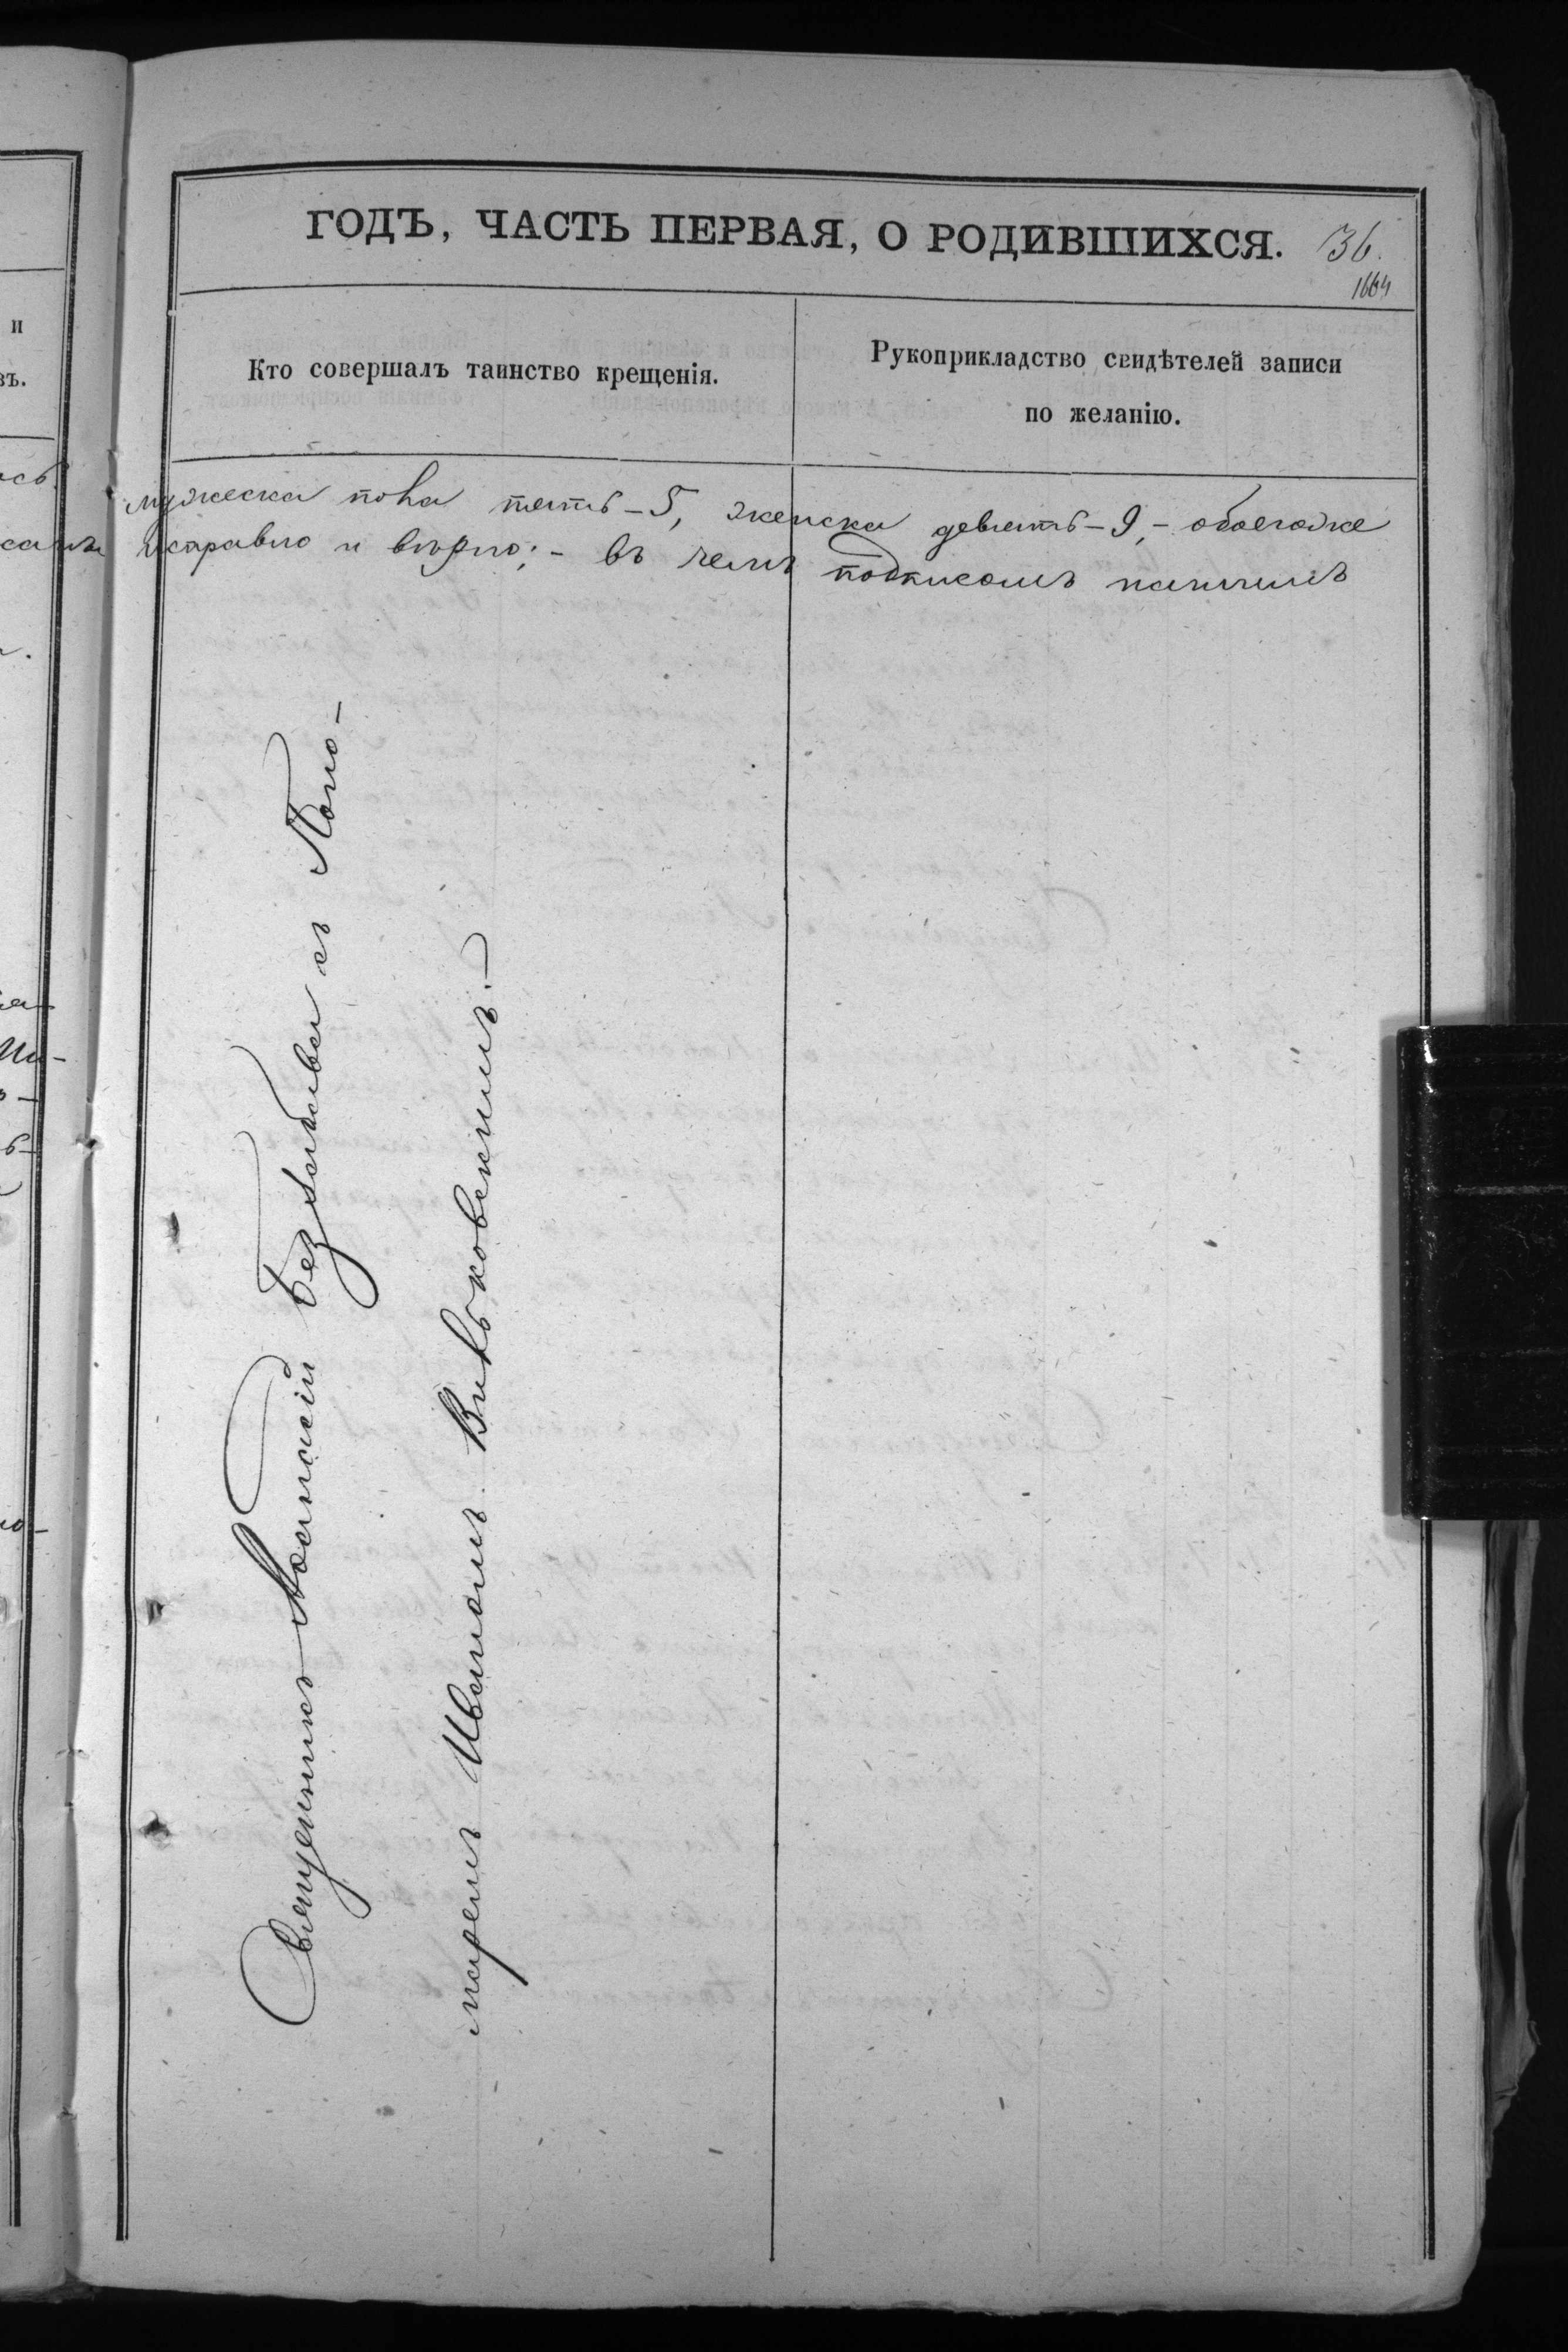 ГОДЪ, ЧАСТЬ ПЕРВАЯ, О РОДИВШИХСЯ.
136.
1664
и
въ.
Кто совершалъ таинство крещенія.
Рукоприкладство свидѣтелей записи
по желанію.
мужеска пола пять – 5, женска девять – 9, – обоегоже
исправно и вѣрно; – въ чемъ подписомъ нашимъ
Священникъ Аѳанасій Беззабава съ Поно-
маремъ Иваномъ Вильковскимъ. –